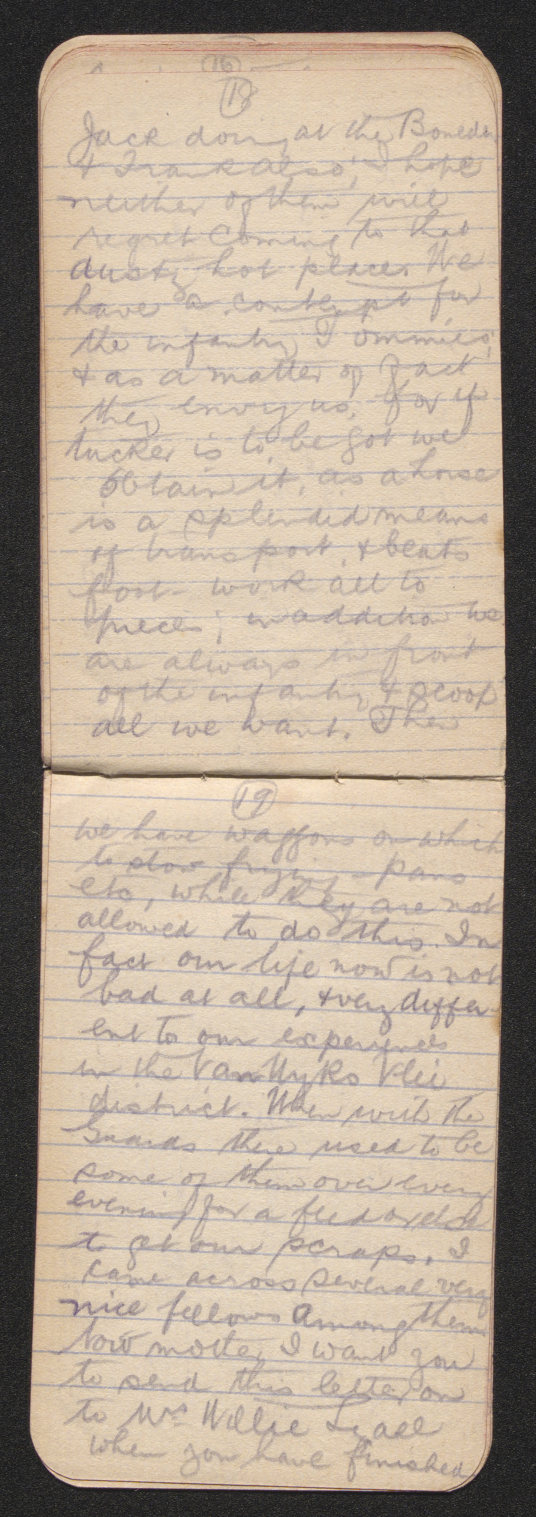 (18)
Jack doing at the Boneden
& Frank also; I hope
neither of them will
regret coming to that
dusty hot place. We
have a contempt for
the infantry Tommies,
& as a matter of fact
they envy us, for if
tucker is to be got we
obtain it, as a horse
is a splendid means
of transport, & beats
foot-work all to
pieces; in addition we
are always in front
of the infantry & scoop
all we want. Then
(19)
we have waggons on which
to stow frying-pans
etc, while they are not
allowed to do this. In
fact our life now is not
bad at all, & very differ-
ent to our experiences
in the Van Wyks Vlei
district. When with the
Guards there used to be
some of them over every
evening for a feed or else
to get our scraps. I
came across several very
nice fellows among them
Now mother I want you
to send this letter on
to Mrs Willie
when you have finished